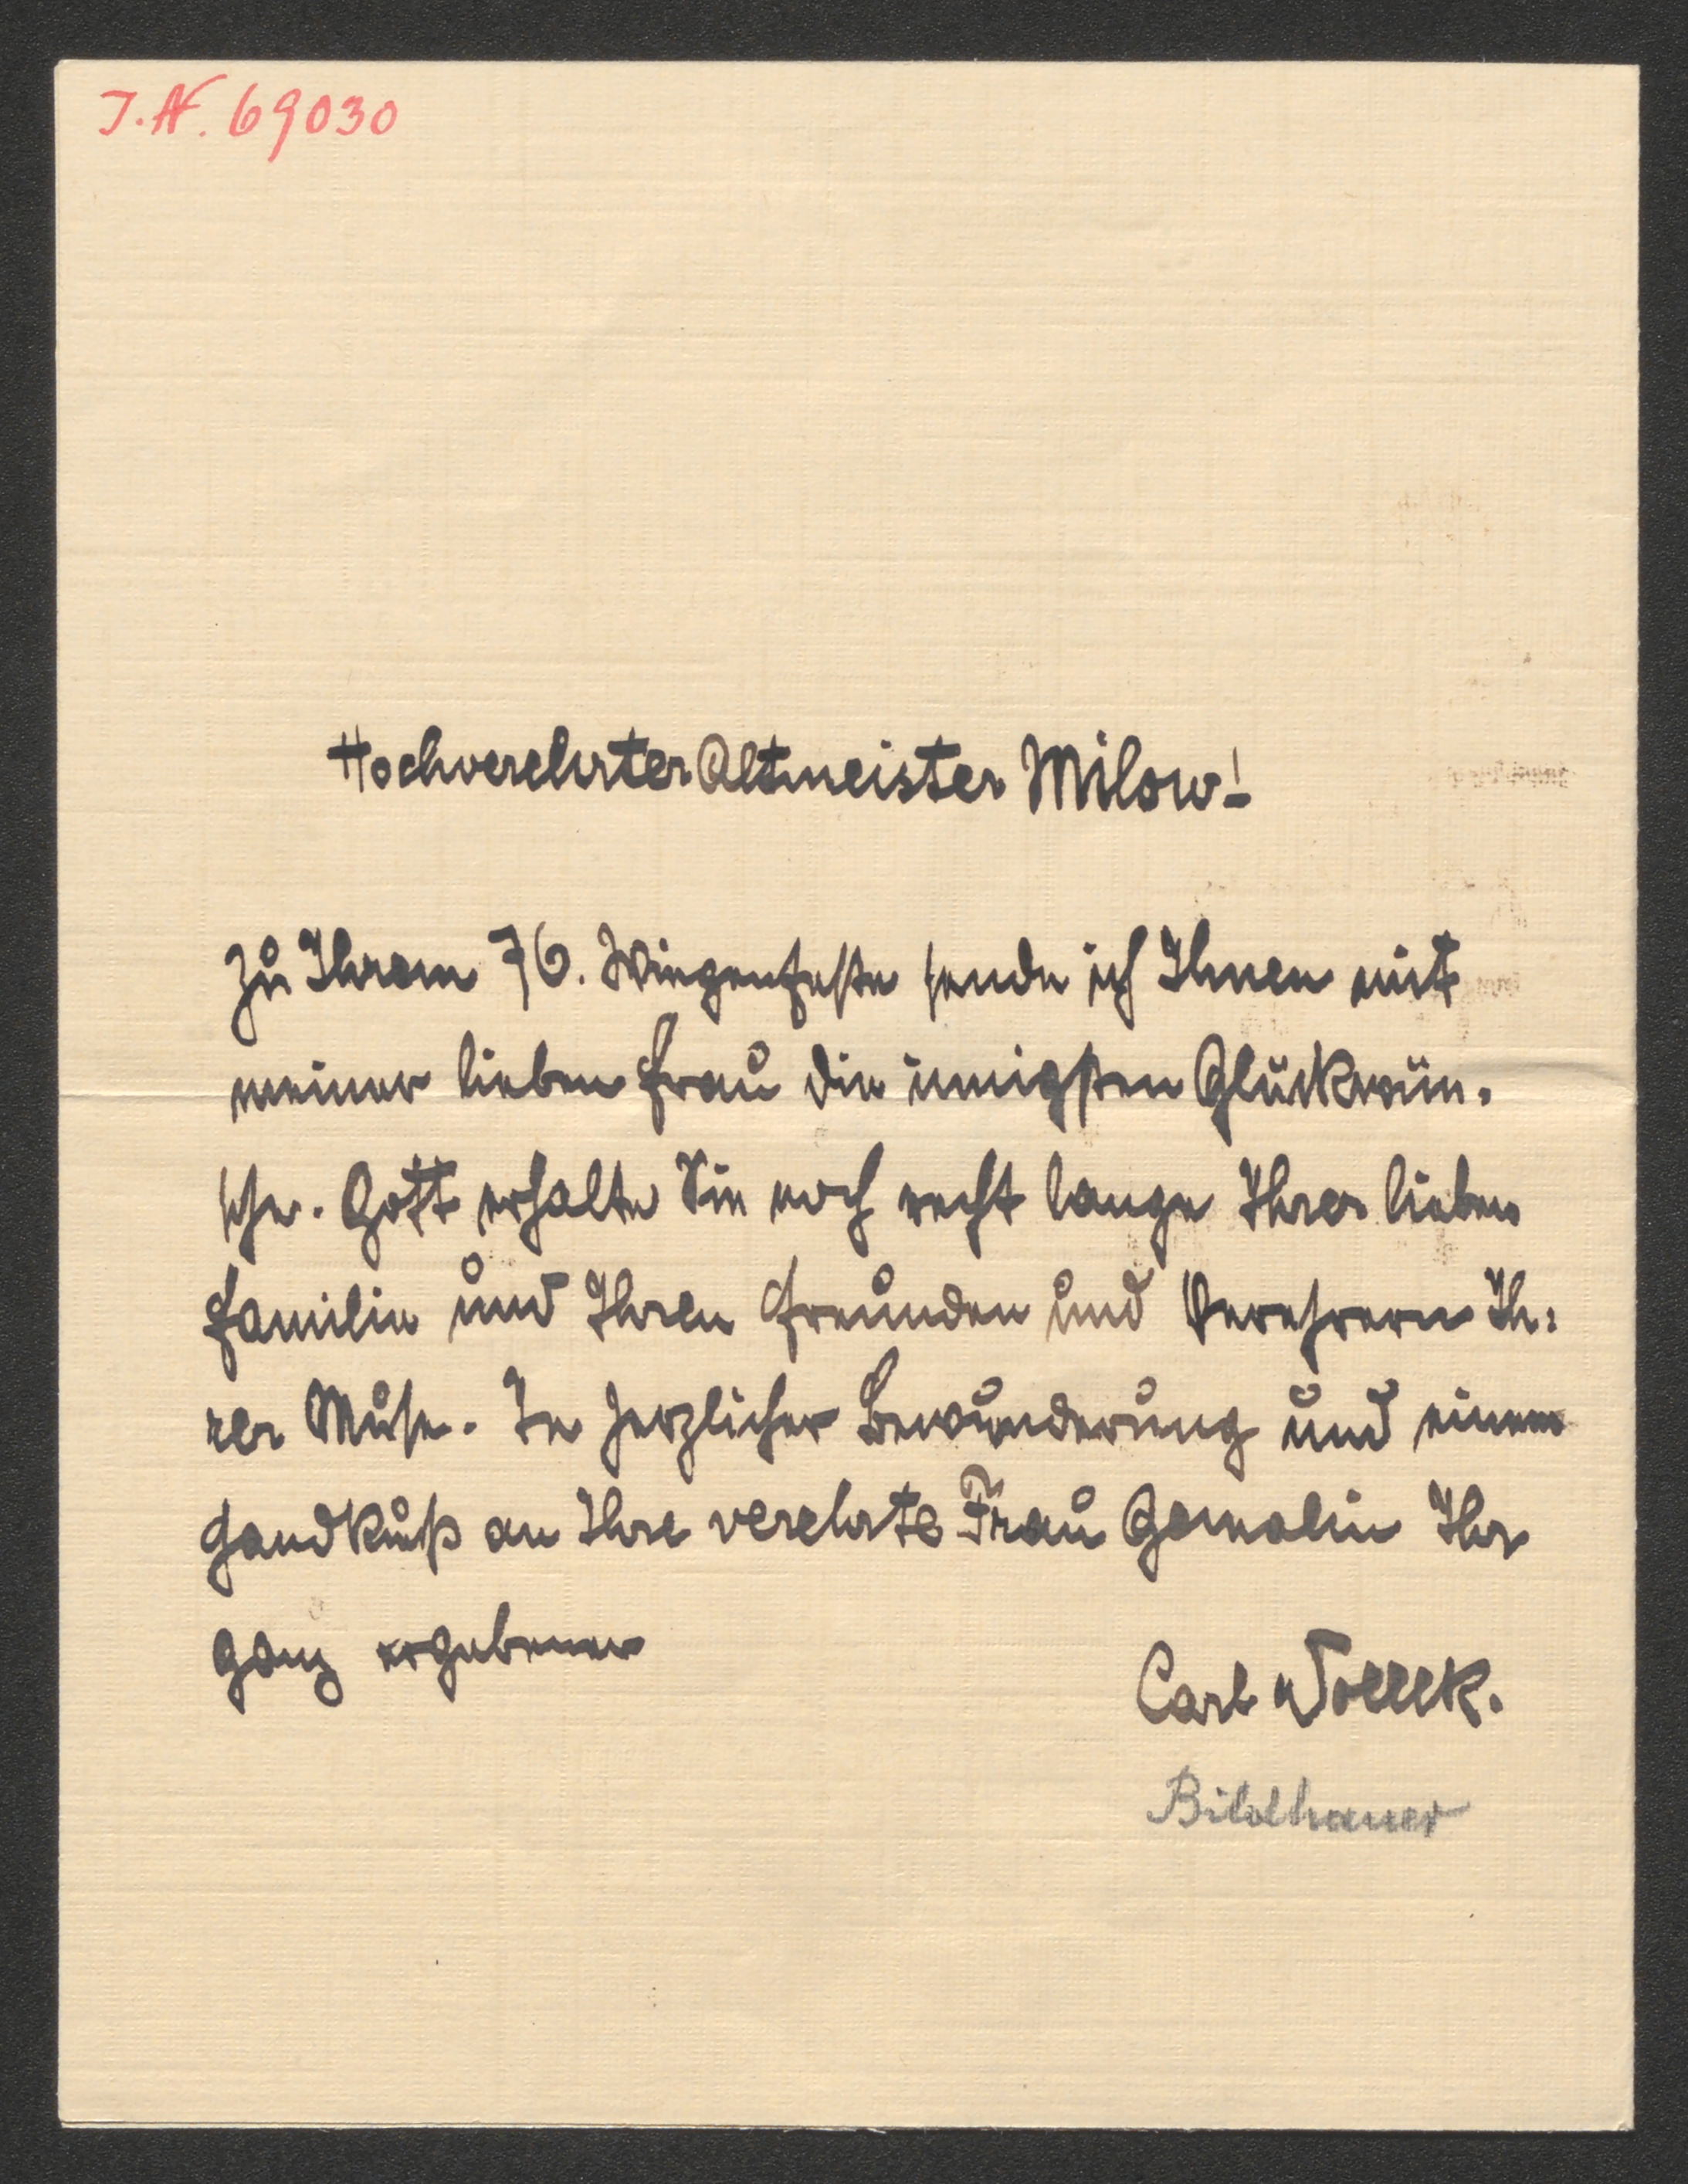 J.N. 69030
Hochverehrter Altmeister Milow!
Zu Ihrem 76. Wiegenfeste sende ich Ihnen mit
meiner lieben Frau die innigsten Glückwün-
sche. Gott erhalte Sie noch recht lange Ihrer lieben
Familie und Ihren Freunden und Verehrern Ih:
rer Muse. In herzlicher Bewunderung und einem
Handkuß an Ihre verehrte Frau Gemalin Ihr
ganz ergebener
Carl Wollek.
Bildhauer